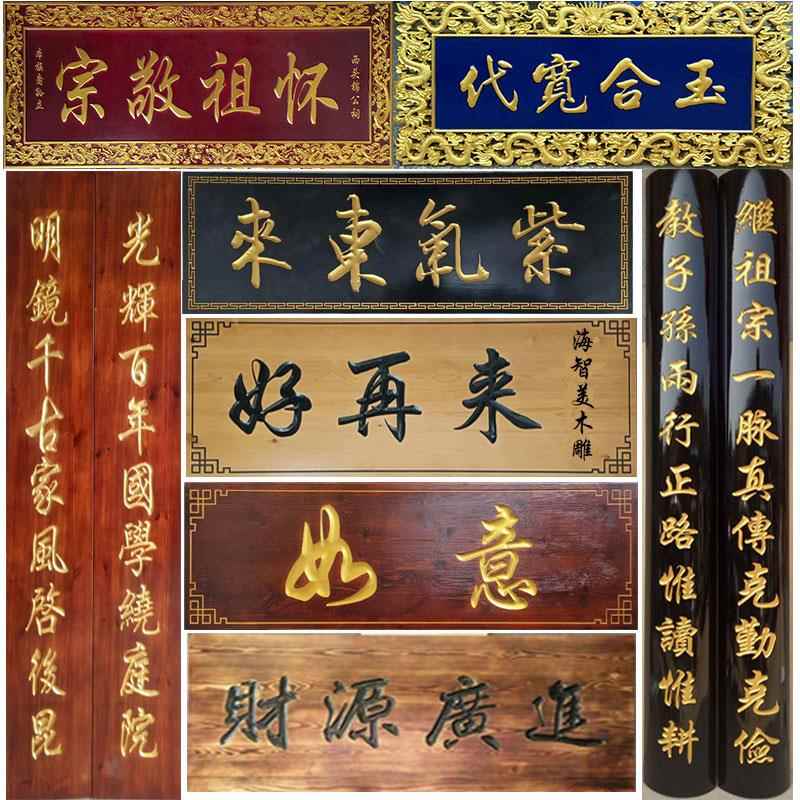 怀祖敬宗
玉合寬代
光輝百年國學繞庭院
明鏡千古家風啓後昆
紫氣東來
好再来
海智美木雕
如意
財源廣進
繼祖宗一脉真傳克勤克儉
教子孫兩行正路惟讀惟耕